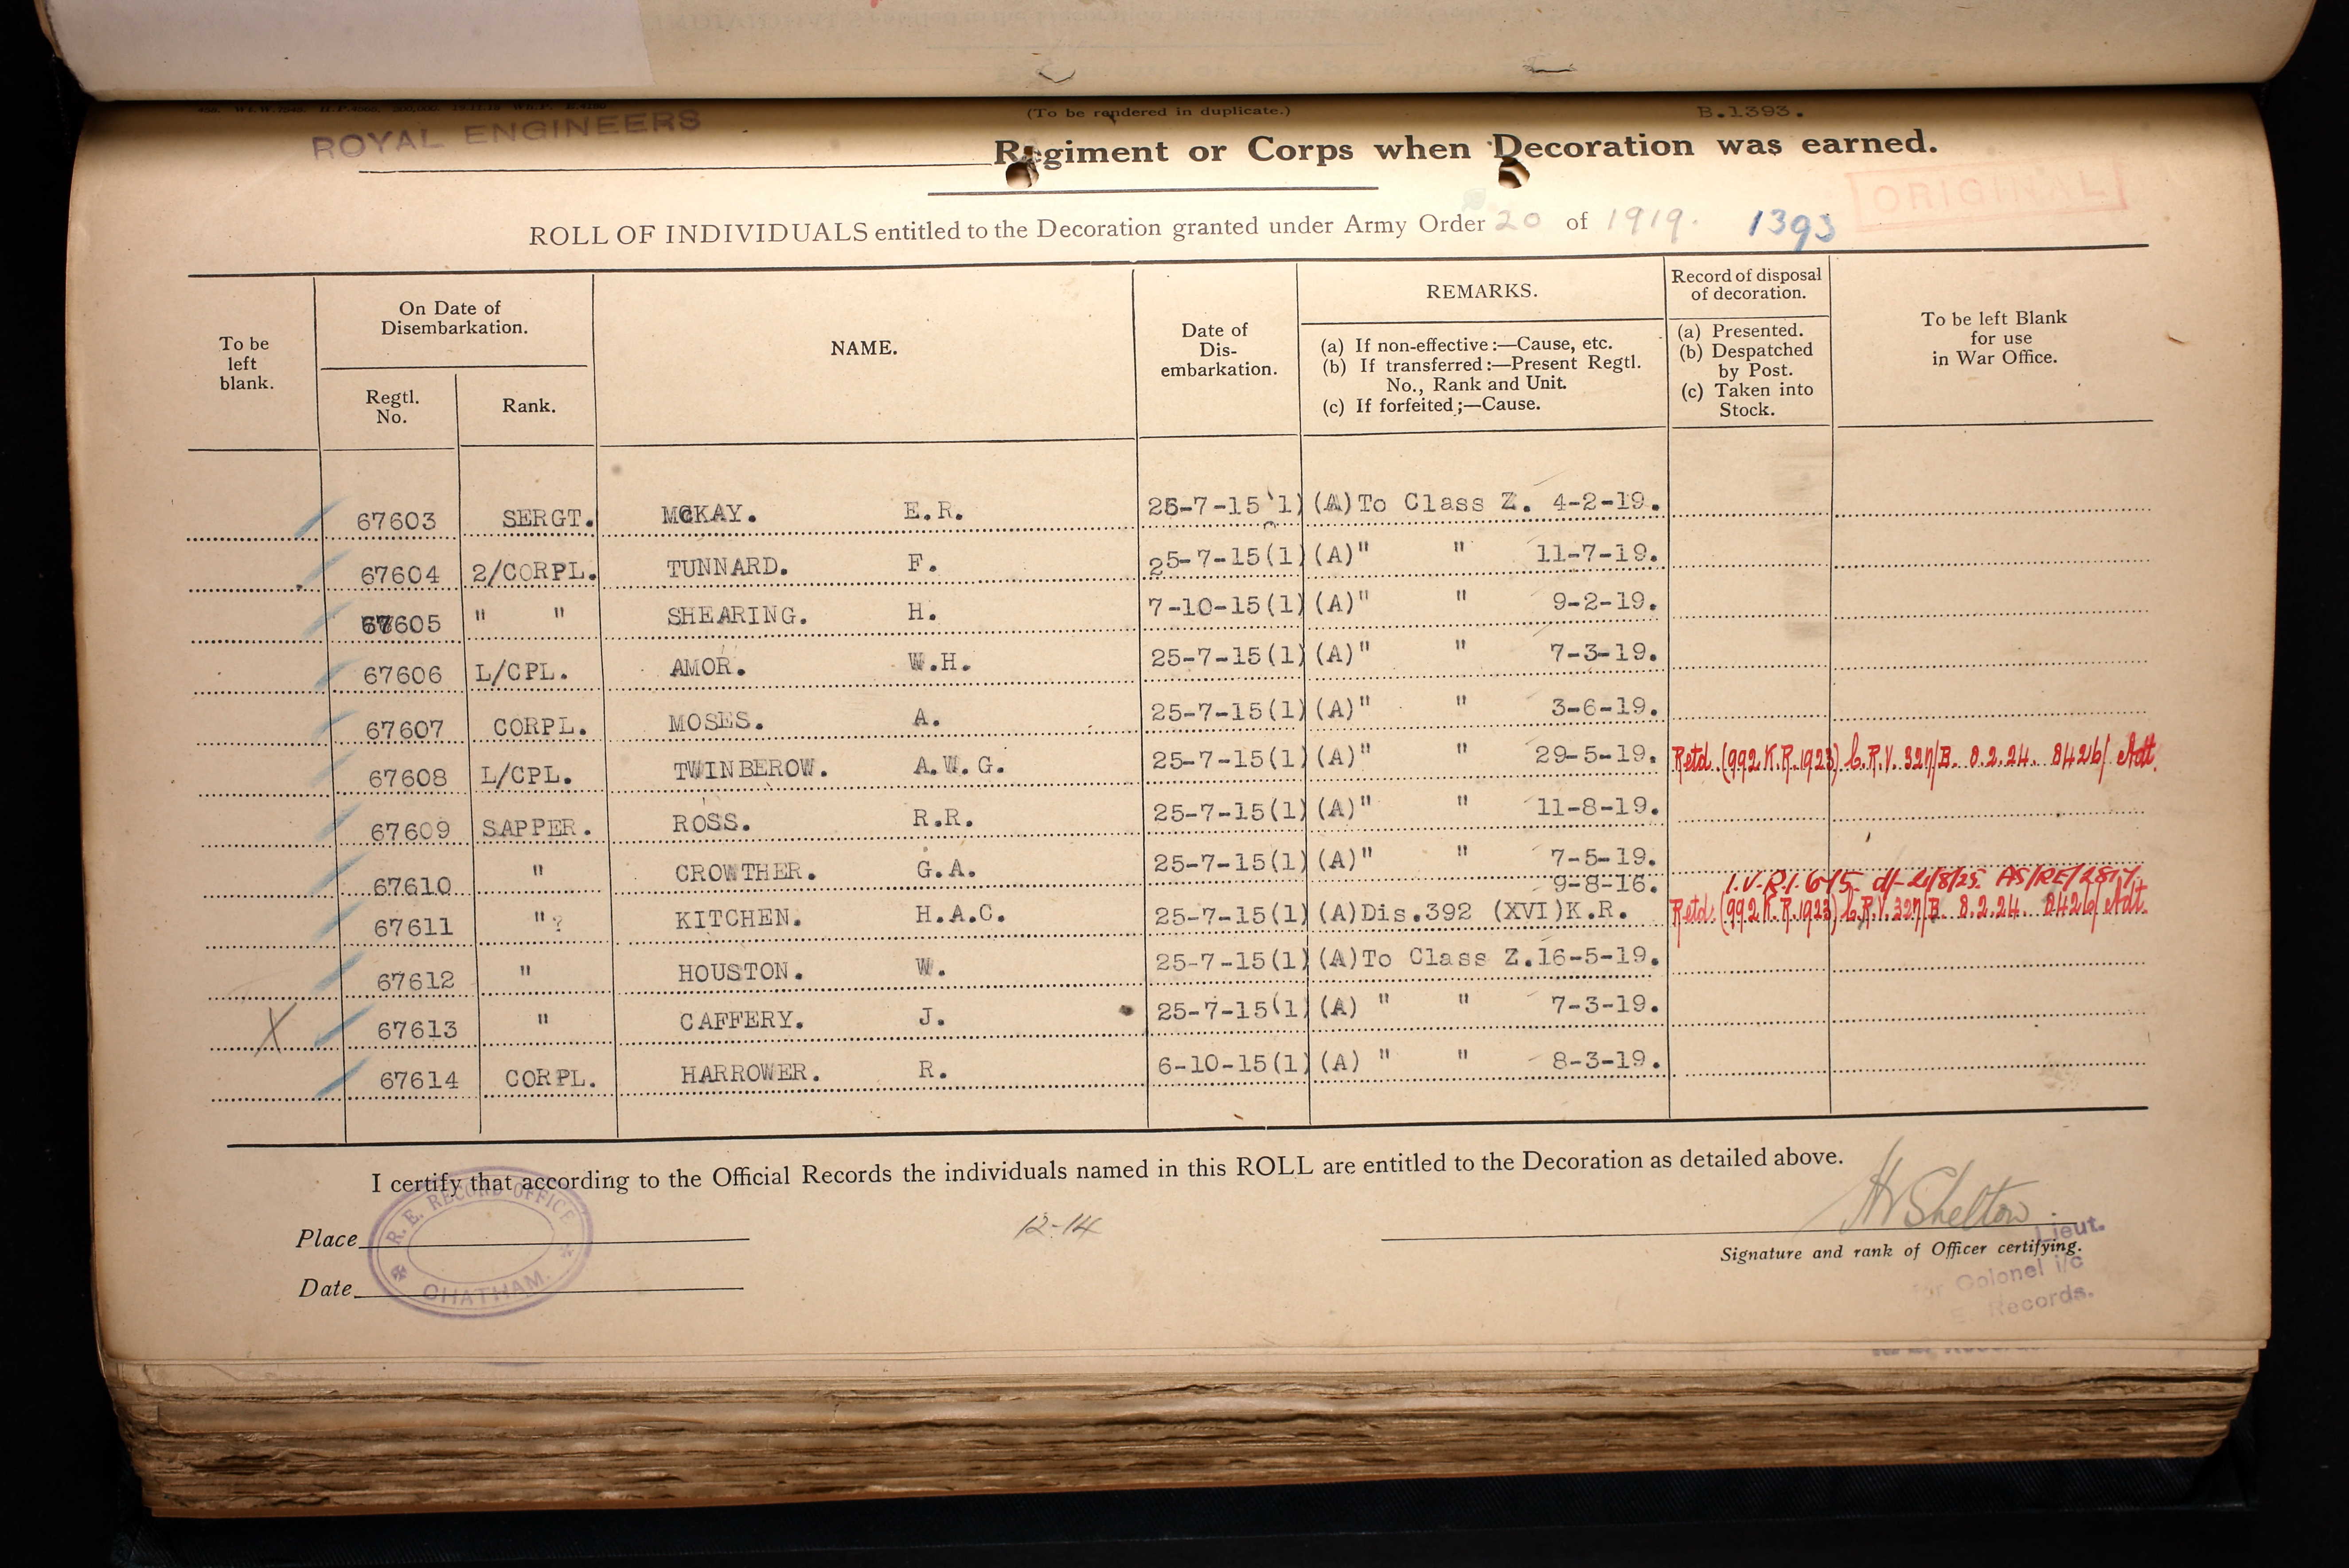 (To be rendered in duplicate.) B.1393.
ROYAL ENGINEERS Regiment or Corps when Decoration was earned.
ORIGINAL
ROLL OF INDIVIDUALS entitled to the Decoration granted under Army Order 20 of 1919. 1393
To be left blank.
On Date of Disembarkation.
Regtl. No.
Rank.
NAME.
Date of Dis-embarkation.
REMARKS.
(a) If non-effective:—Cause, etc.
(b) If transferred:—Present Regtl. No., Rank and Unit.
(c) If forfeited;—Cause.
Record of disposal of decoration.
(a) Presented.
(b) Despatched by Post.
(c) Taken into Stock.
To be left Blank for use in War Office.
67603 SERGT. MCKAY. E.R. 25-7-15(1) (A)To Class Z. 4-2-19.
67604 2/CORPL. TUNNARD. F. 25-7-15(1) (A)" " 11-7-19.
67605 " " SHEARING. H. 7-10-15(1) (A)" " 9-2-19.
67606 L/CPL. AMOR. W.H. 25-7-15(1) (A)" " 7-3-19.
67607 CORPL. MOSES. A. 25-7-15(1) (A)" " 3-6-19.
67608 L/CPL. TWINBEROW. A.W.G. 25-7-15(1) (A)" " 29-5-19. Retd. (992 K.R. 1923) C.R.V. 327/B. 8.2.24. 8426/Adt.
67609 SAPPER. ROSS. R.R. 25-7-15(1) (A)" " 11-8-19.
67610 " CROWTHER. G.A. 25-7-15(1) (A)" " 7-5-19.
9-8-16. I.V.R.1.675 d/- 4/8/25. AS/RE/2817.
67611 "? KITCHEN. H.A.C. 25-7-15(1) (A)Dis.392 (XVI)K.R. Retd. (992 K.R. 1923) C.R.V. 327/B. 8.2.24. 8426/Adt.
67612 " HOUSTON. W. 25-7-15(1) (A)To Class Z.16-5-19.
X 67613 " CAFFERY. J. 25-7-15(1) (A) " " 7-3-19.
67614 CORPL. HARROWER. R. 6-10-15(1) (A) " " 8-3-19.
I certify that according to the Official Records the individuals named in this ROLL are entitled to the Decoration as detailed above.
R.E. RECORD OFFICE
CHATHAM.
12-14
HV Shelton
Lieut.
Place
Signature and rank of Officer certifying.
for Colonel i/c
Date
Records.